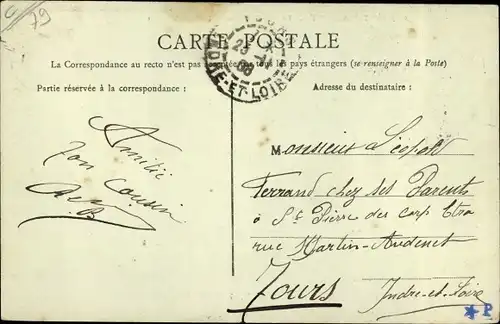 79
CARTE POSTALE
La Correspondance au recto n'est pas acceptée par tous les pays étrangers (se renseigner à la Poste)
Partie réservée à la correspondance :
Adresse du destinataire :
ET-LOIRE
Amitié
Ton Cousin
Monsieur Léopold
Ferrand chez ses Parents
à St Pierre des Corps
rue Martin-Audenet
Tours
Indre-et-Loire
P